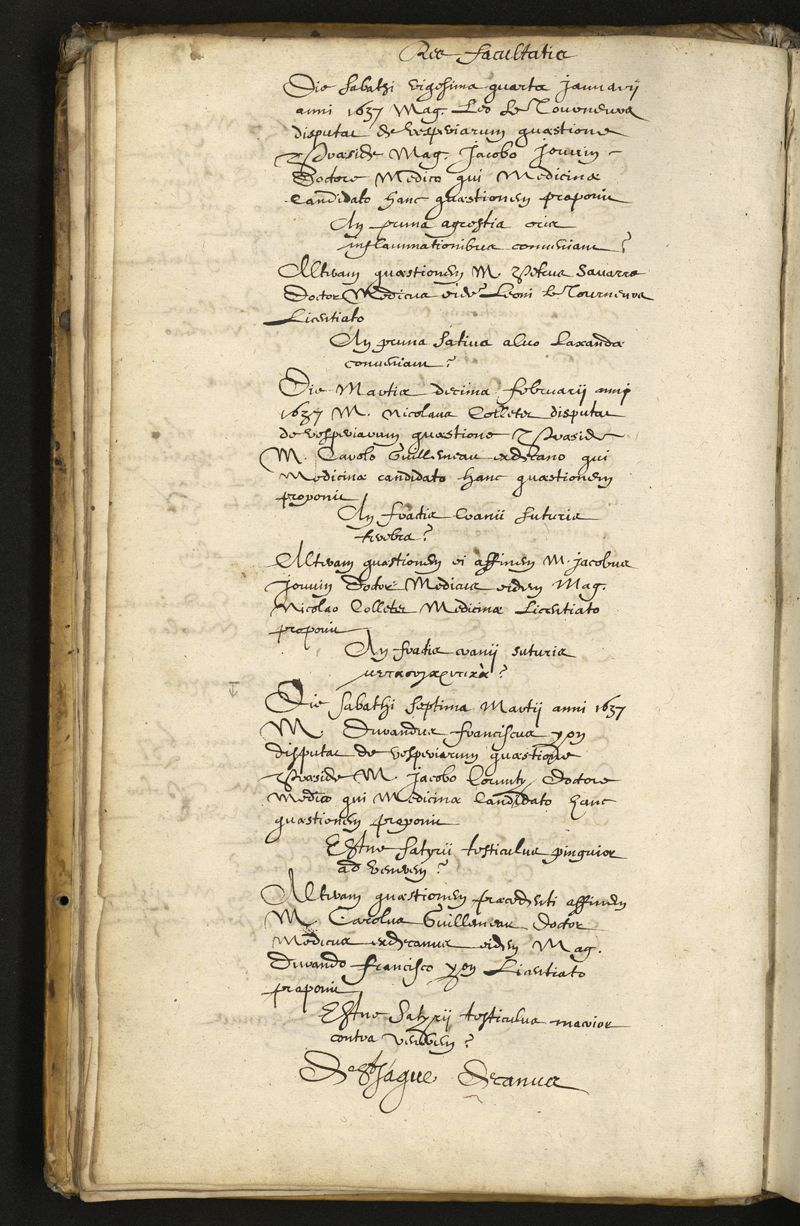 Res facultatis
Die sabathi vigesima quarta januarij
anni 1637 Mag. Leo le Tourneurs
disputat de vesperiarum quæstione
Præside Mag. Jacobo Jouvin
Doctore Medico qui Medicinæ
Candidato hanc quæstionem proponit
An pruna agrestia oris
inflammationibus conveniant?
Alteram quæstionem M. Petrus Savarre
Doctor Medicus eidem Leoni le Tourneurs
Licentiato
An pruna sativa alvo laxandæ
conveniant?
Die Martis decima februarij anni
1637 M. Nicolaus Colletet disputat
de vesperiarum quæstione Præside
M. Carolo Guillemeau exdecano qui
Medicinæ candidato hanc quæstionem
proponit
An fractis cranii suturis
terebra?
Alteram quæstionem ei affinem M. jacobus
Jouvin Doctor Medicus eidem Mag.
Nicolao Colletet Medicinæ Licentiato
proponit
An fractis cranii suturis
μετασυγκριτικὰ?
Die sabathi septima Martij anni 1637
M. Durandus franciscus yon
disputat de vesperiarum quæstione
Præside M. jacobo Doctore
Medico qui Medicinæ Candidato hanc
quæstionem proponit
Estne satyrii testiculus pinguior
ad venerem?
Alteram quæstionem præcedenti affinem
M. Carolus Guillemeau Doctor
Medicus exdecanus eidem Mag.
Durando francisco yon Licentiato
proponit
Estne satyrij testiculus macrior
contra venerem?
Decanus